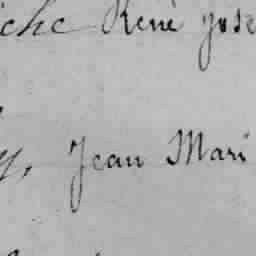 iche René Jose
y, Jean Mari